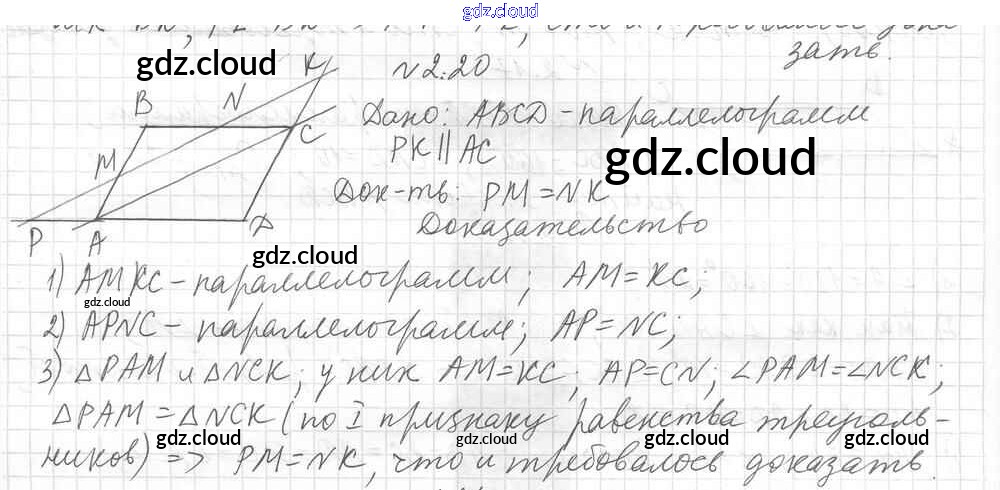 gdz.cloud
зать.
gdz.cloud
N 2.20
B N K
Дано: ABCD - параллелограмм
C
PK || AC
gdz.cloud
M
Док-ть: PM = NK
Доказательство
P A D
gdz.cloud
1) AMKC - параллелограмм; AM = KC;
gdz.cloud
2) APNC - параллелограмм; AP = NC;
3) △PAM и △NCK; у них AM = KC; AP = CN; ∠PAM = ∠NCK;
△PAM = △NCK (по I признаку равенства треуголь-
gdz.cloud gdz.cloud gdz.cloud gdz.cloud
ников) => PM = NK, что и требовалось доказать.